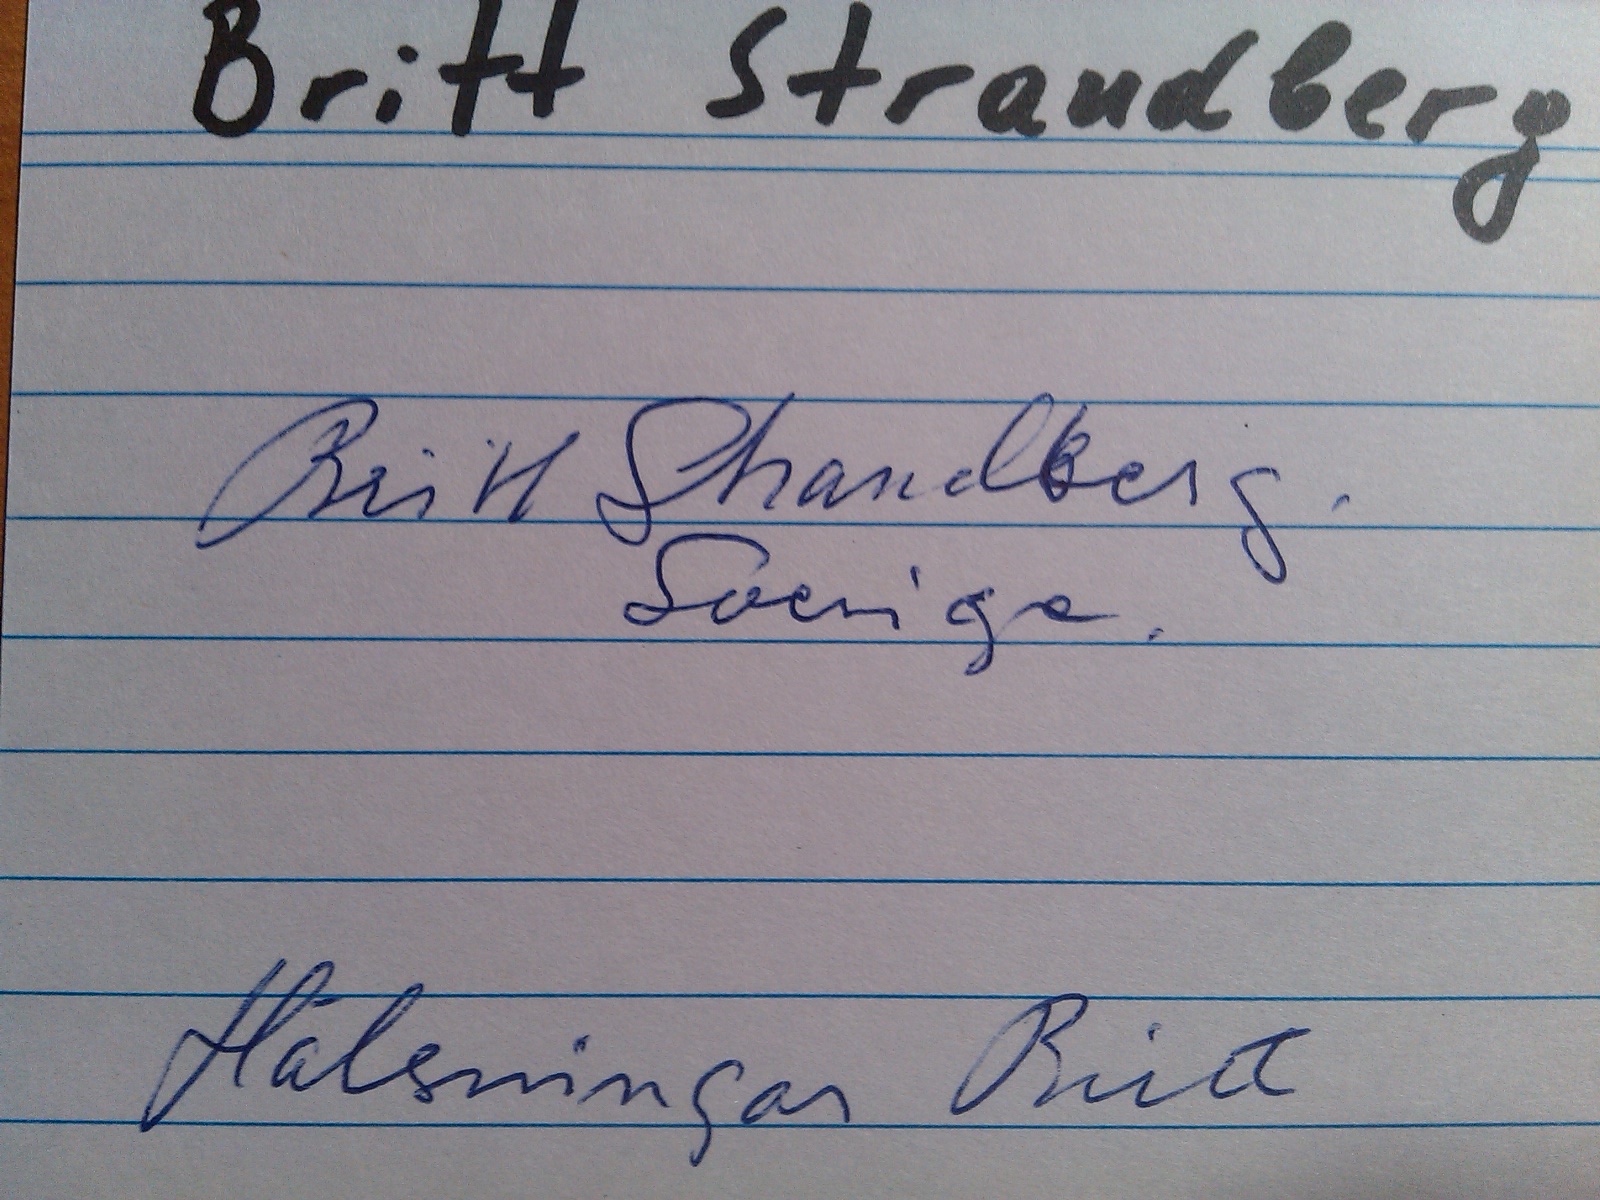 Britt Strandberg
Britt Strandberg.
Sverige.
Hälsningar Britt